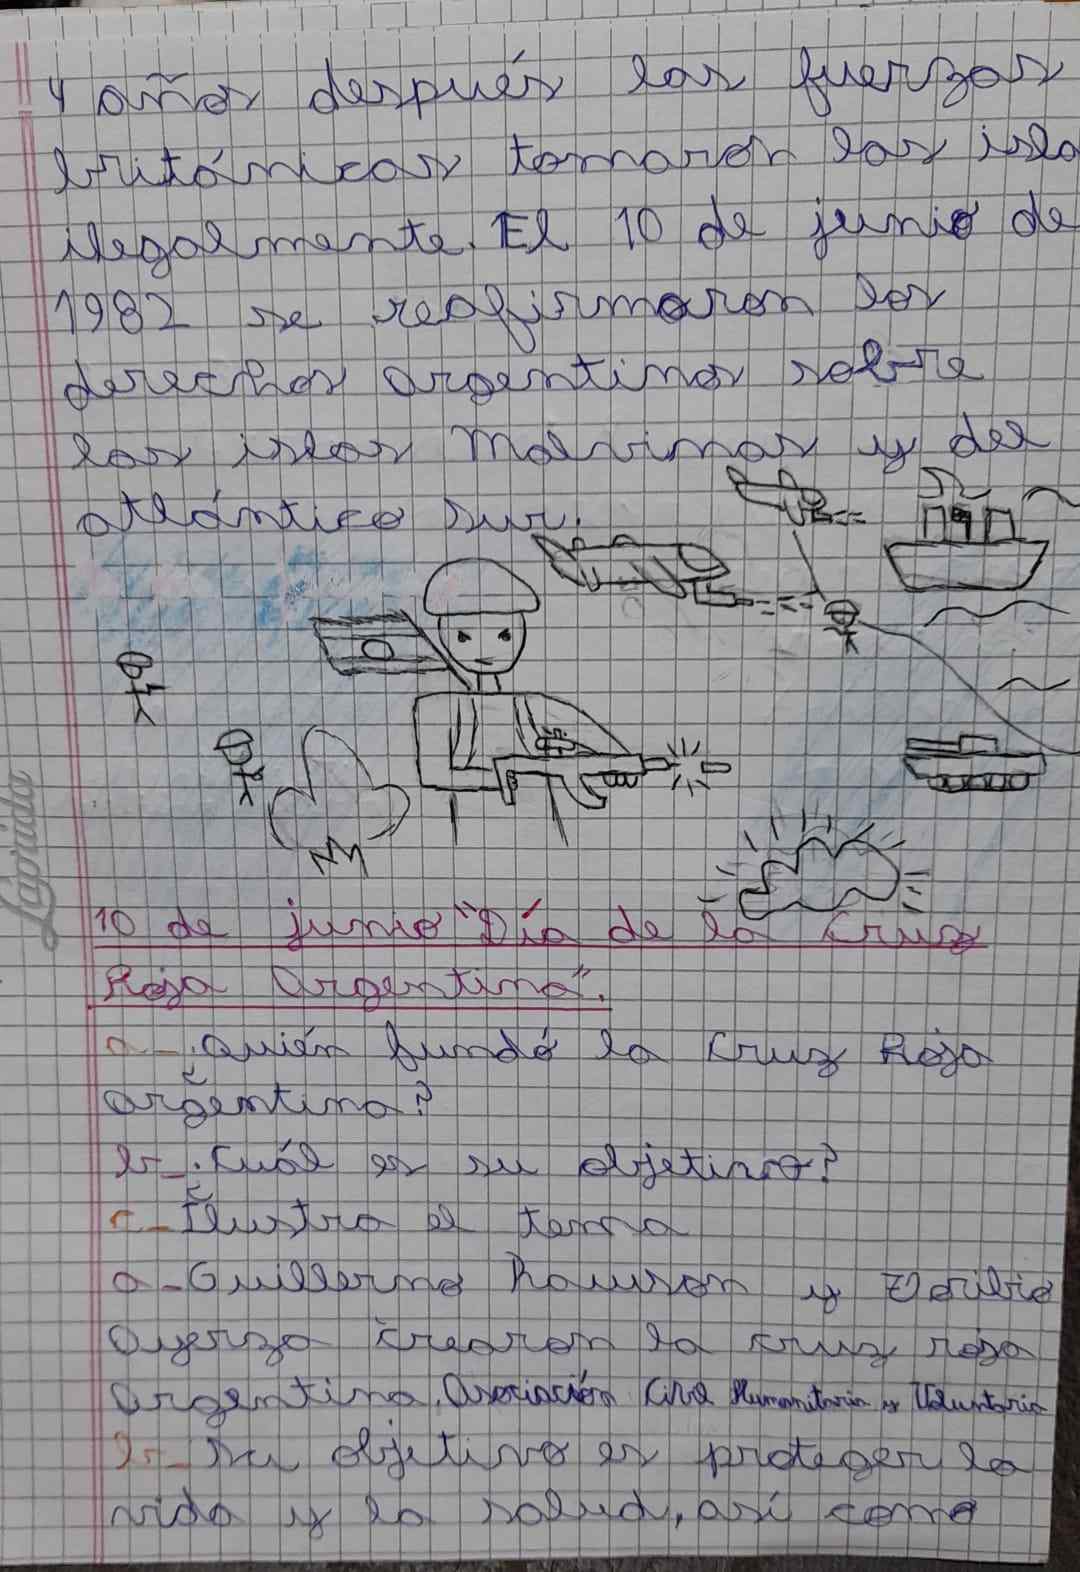 4 años después las fuerzas
británicas tomaron las isla
ilegalmente. El 10 de junio de
1982 se reafirmaron los
derechos argentinos sobre
las islas Malvinas y del
atlántico sur.
Laprida
10 de junio "Día de la Cruz
Roja Argentina".
a-¿Quién fundó la Cruz Roja
argentina?
b-¿Cuál es su objetivo?
c-Ilustra el tema
a-Guillermo Rawson y Toribio
Ayerza crearon la cruz roja
argentina, Asociación Civil Humanitaria y Voluntaria
b-Su objetivo es proteger la
vida y la salud, así como